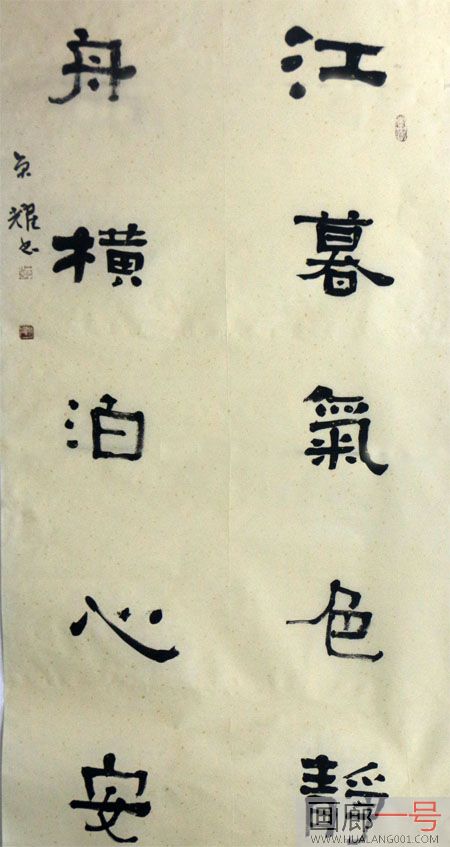 江暮氣色靜
舟橫泊心安
京耀书
画廊一号
WWW.HUALANG001.COM